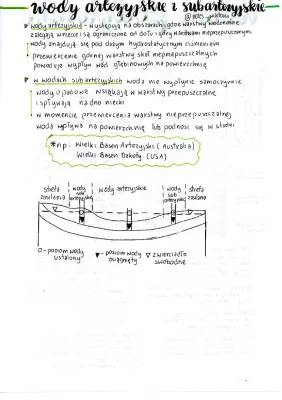 wody artezyjskie i subartezyjskie
wody artezyjskie - występują na obszarach, gdzie warstwy wodonośne
zalegają w niecce i są ograniczone od dołu i góry warstwami nieprzepuszczalnymi
wody znajdują się pod dużym hydrostatycznym ciśnieniem
przewiercenie górnej warstwy skał nieprzepuszczalnych
powoduje wypływ wód głębinowych na powierzchnię
w wodach subartezyjskich woda nie wypłynie samoczynnie
wody opadowe wsiąkają w warstwy przepuszczalne
i spływają na dno niecki
w momencie przewiercenia warstwy nieprzepuszczalnej
woda wpływa na powierzchnię lub podnosi się w studni
*np: Wielki Basen Artezyjski (Australia)
Wielki Basen Dakoty (USA)
strefa zasilania
wody sub artezyjskie
wody artezyjskie
wody sub artezyjskie
strefa zasilania
O - poziom wody ustalony
▼ - poziom wody osiągnięty
▽ zwierciadło swobodne